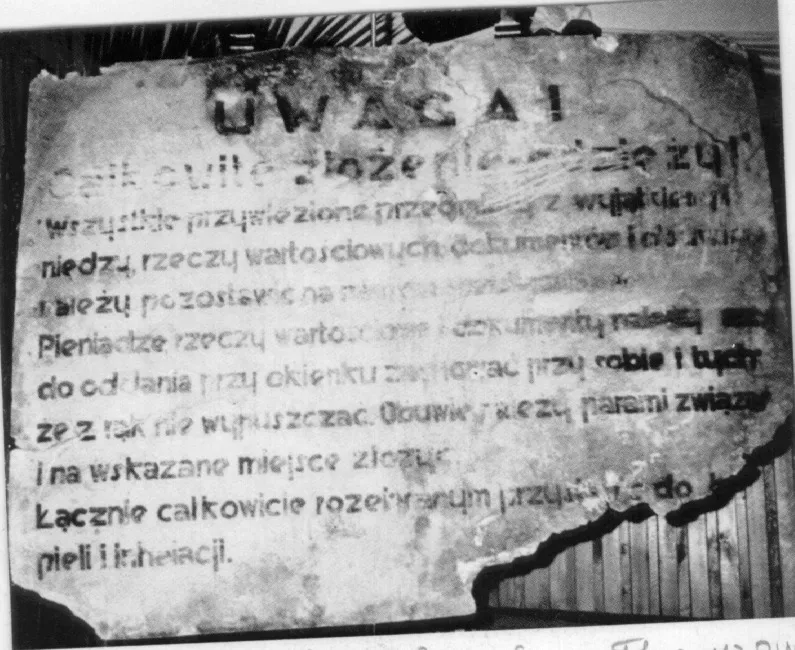 UWAGA!
Całkowite złożenie odzieży!
Wszystkie przywiezione przedmioty z wyjątkiem
niędzy, rzeczy wartościowych, dokumentów i
należy pozostawić na
Pieniądze rzeczy wartościowe i dokumenty należy
do oddania przy okienku zachować przy sobie i tych
że z rąk nie wypuszczac. Obuwie należy parami związać
i na wskazane miejsce złożyć.
Łącznie całkowicie rozebranym przystąpić do
pieli i inhelacji.